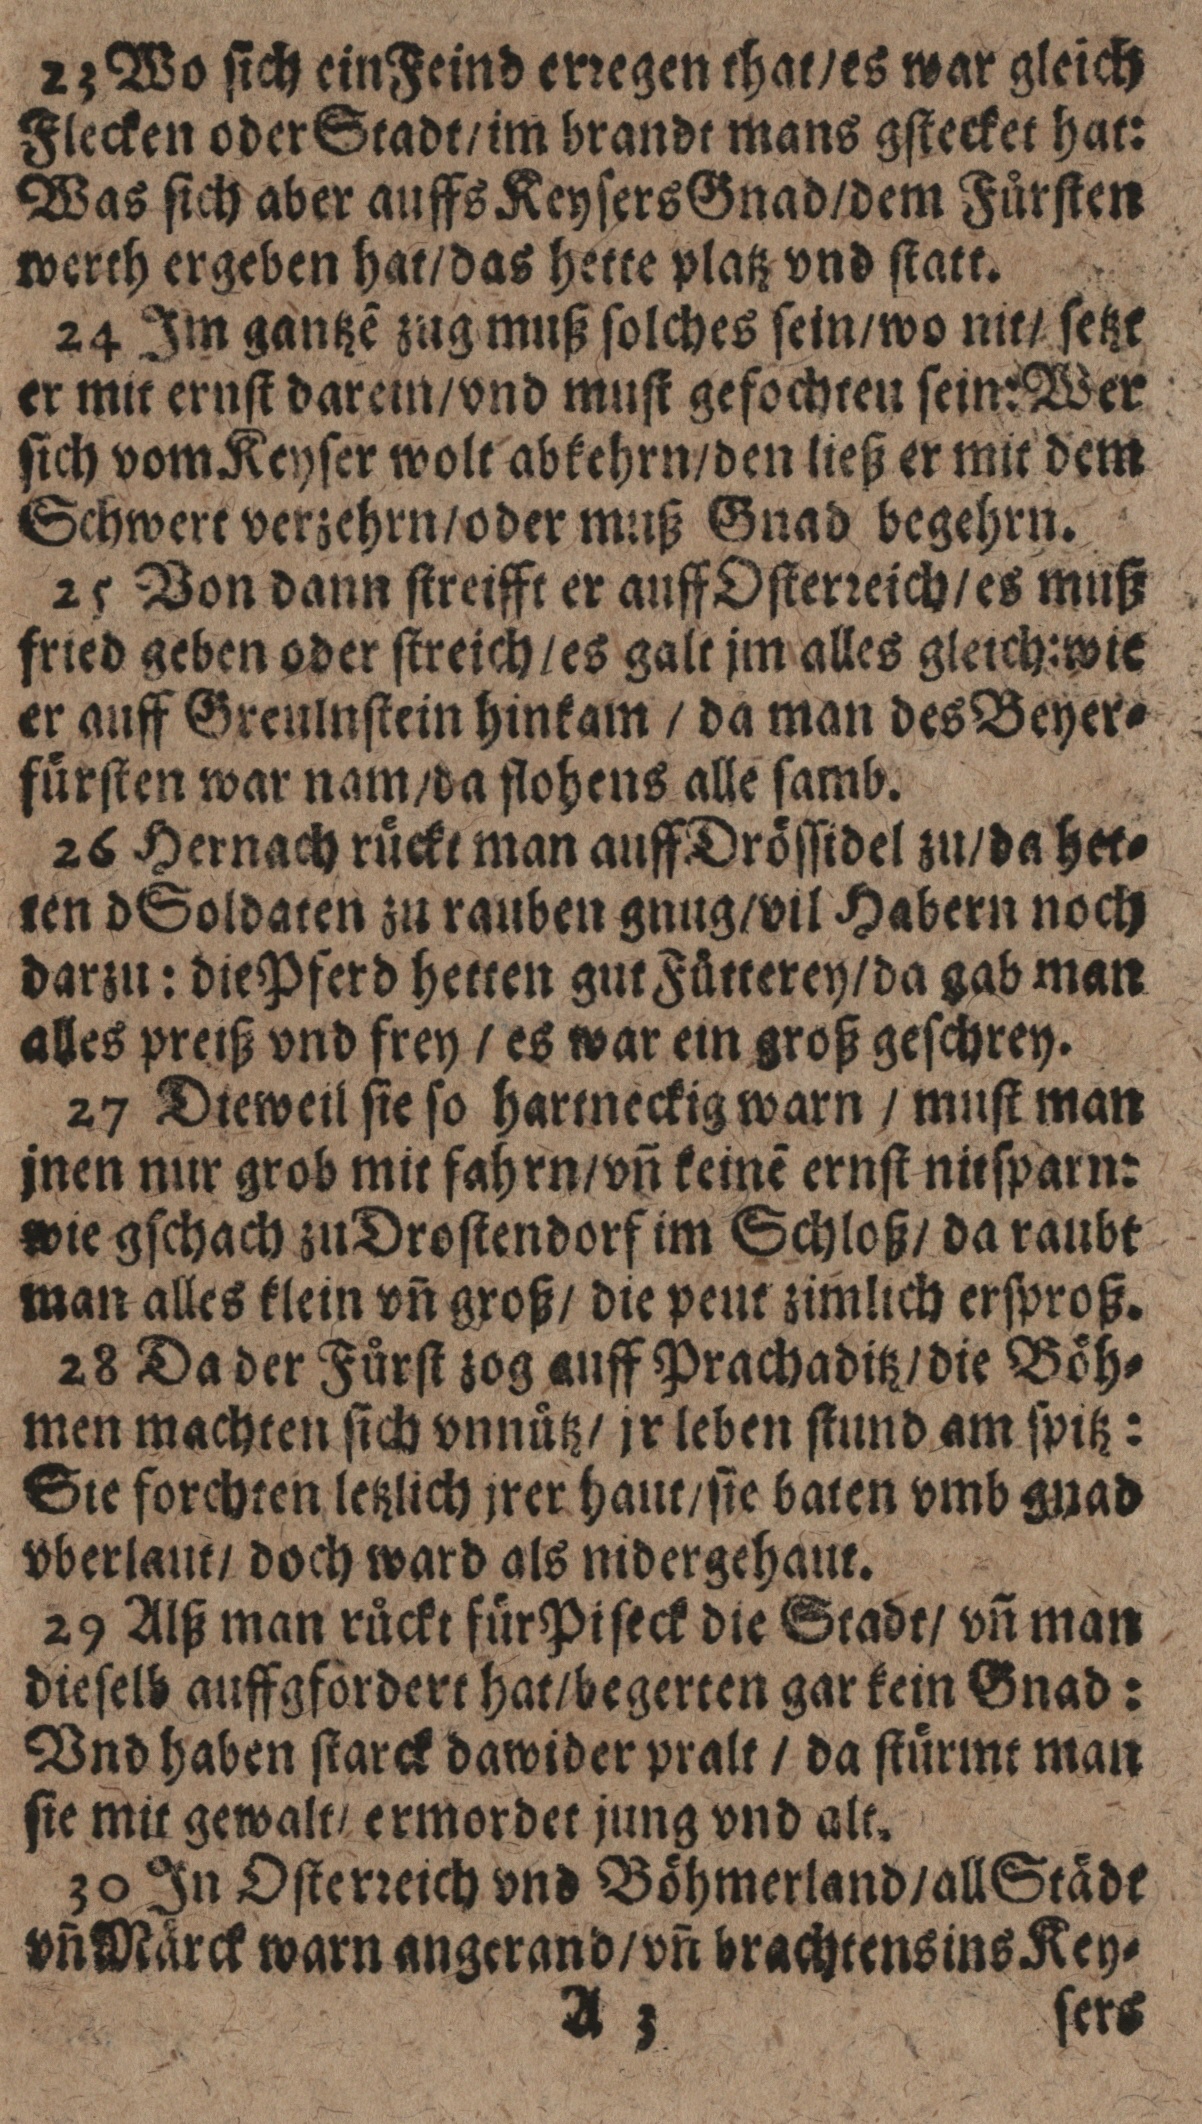 23 Wo sich ein Feind erregen that/es war gleich
Flecken oder Stadt/im brandt mans gstecket hat:
Was sich aber auffs Keysers Gnad/dem Fůrsten
werth ergeben hat/das hette platz vnd statt.
24 Im gantzē zug muß solches sein/wo nit/ setzt
er mit ernst darein/vnd must gefochten sein: Wer
sich vom Keyser wolt abkehrn/den ließ er mit dem
Schwert verzehrn/oder muß Gnad begehrn.
25 Von dann streifft er auff Osterreich/es muß
fried geben oder streich/es galt jm alles gleich:wie
er auff Greulnstein hinkam / da man des Beyer-
fürsten war nam/da flohens alle samb.
26 Hernach růckt man auff Drössidel zu/da het-
ten d Soldaten zu rauben gnug/vil Habern noch
darzu: die Pferd hetten gut Fütterey/da gab man
alles preiß vnd frey / es war ein groß geschrey.
27 Dieweil sie so hartneckig warn / must man
jnen nur grob mit fahrn/vñ keinē ernst nit sparn:
wie gschach zu Drostendorf im Schloß/ da raubt
man alles klein vñ groß/ die peut zimlich ersproß.
28 Da der Fůrst zog auff Prachaditz/die Böh-
men machten sich vnnůtz/ jr leben stund am spitz:
Sie forchten letzlich jrer haut/sie baten vmb gnad
vberlaut/ doch ward als nidergehaut.
29 Alß man růckt für Piseck die Stadt/ vñ man
dieselb auffgfordert hat/begerten gar kein Gnad:
Vnd haben starck dawider pralt / da stürmt man
sie mit gewalt/ ermordet jung vnd alt.
30 In Osterreich vnd Böhmerland/all Städt
vñ Märck warn angerand/vñ brachtens ins Key-
A 3 sers